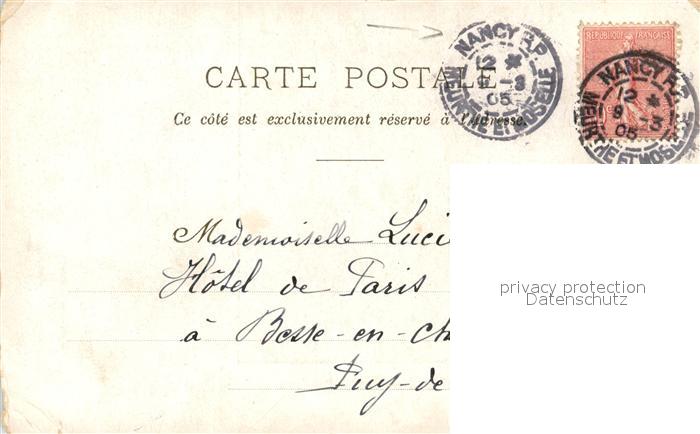 NANCY R.P.
12 *
9 - 3
05
MEURTHE ET MOSELLE
REPUBLIQUE FRANÇAISE
NANCY R.P.
12 *
9 - 3
05
MEURTHE ET MOSELLE
CARTE POSTALE
Ce côté est exclusivement réservé à l'adresse.
Mademoiselle Luci
Hôtel de Paris
à Besse-en-Ch
Puy-de
privacy protection
Datenschutz